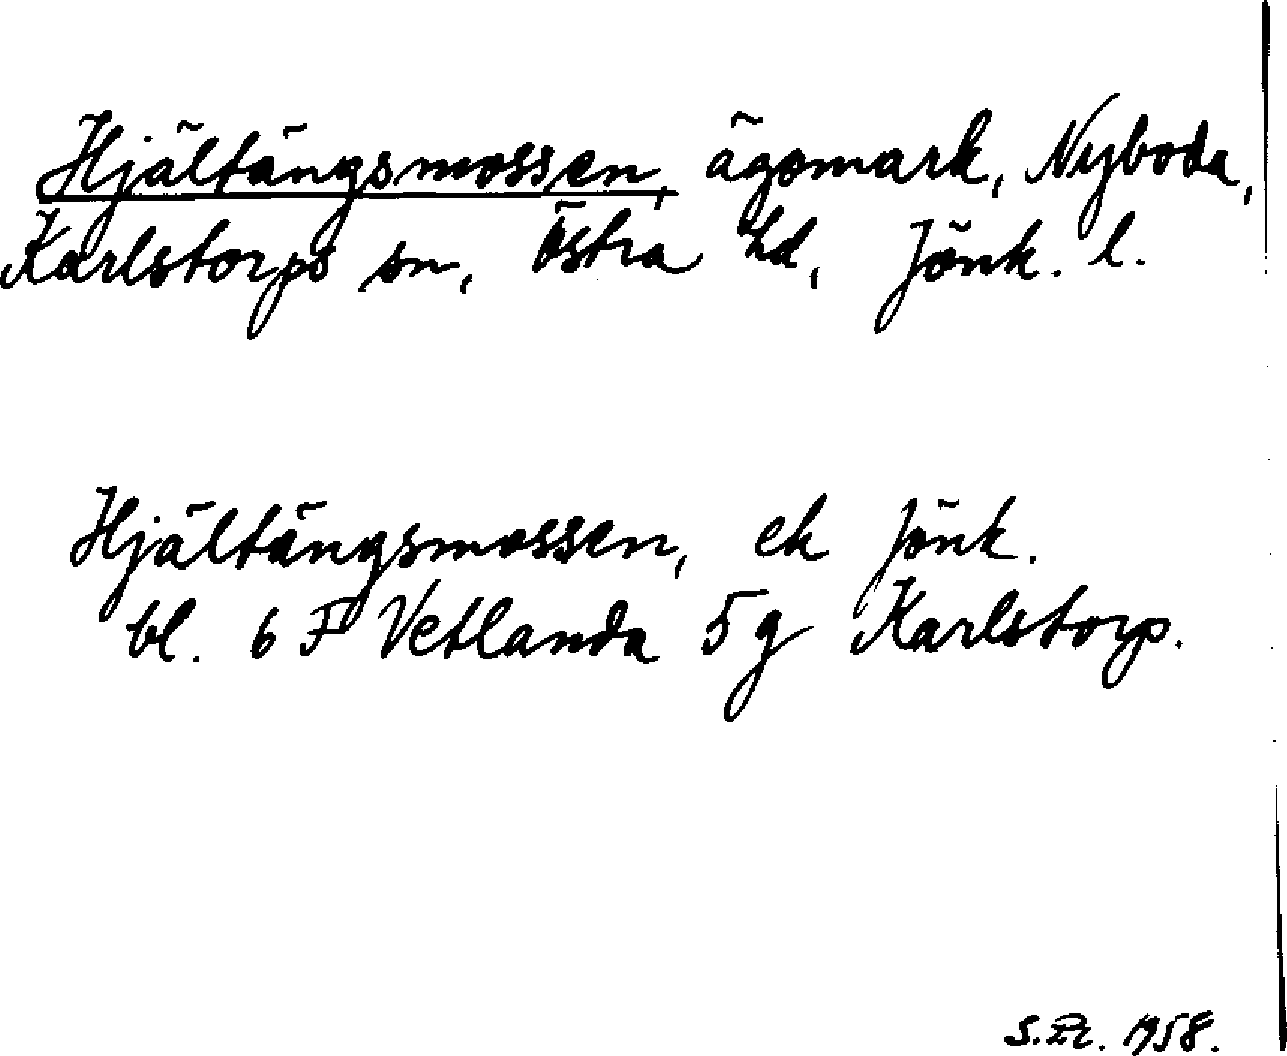 Hjältängsmossen, ägomark, Nyboda,
Karlstorps sn, Östra hd, Jönk. l.
Hjältängsmossen, ek Jönk.
bl. 6 F Vetlanda 5 g Karlstorp.
1958.